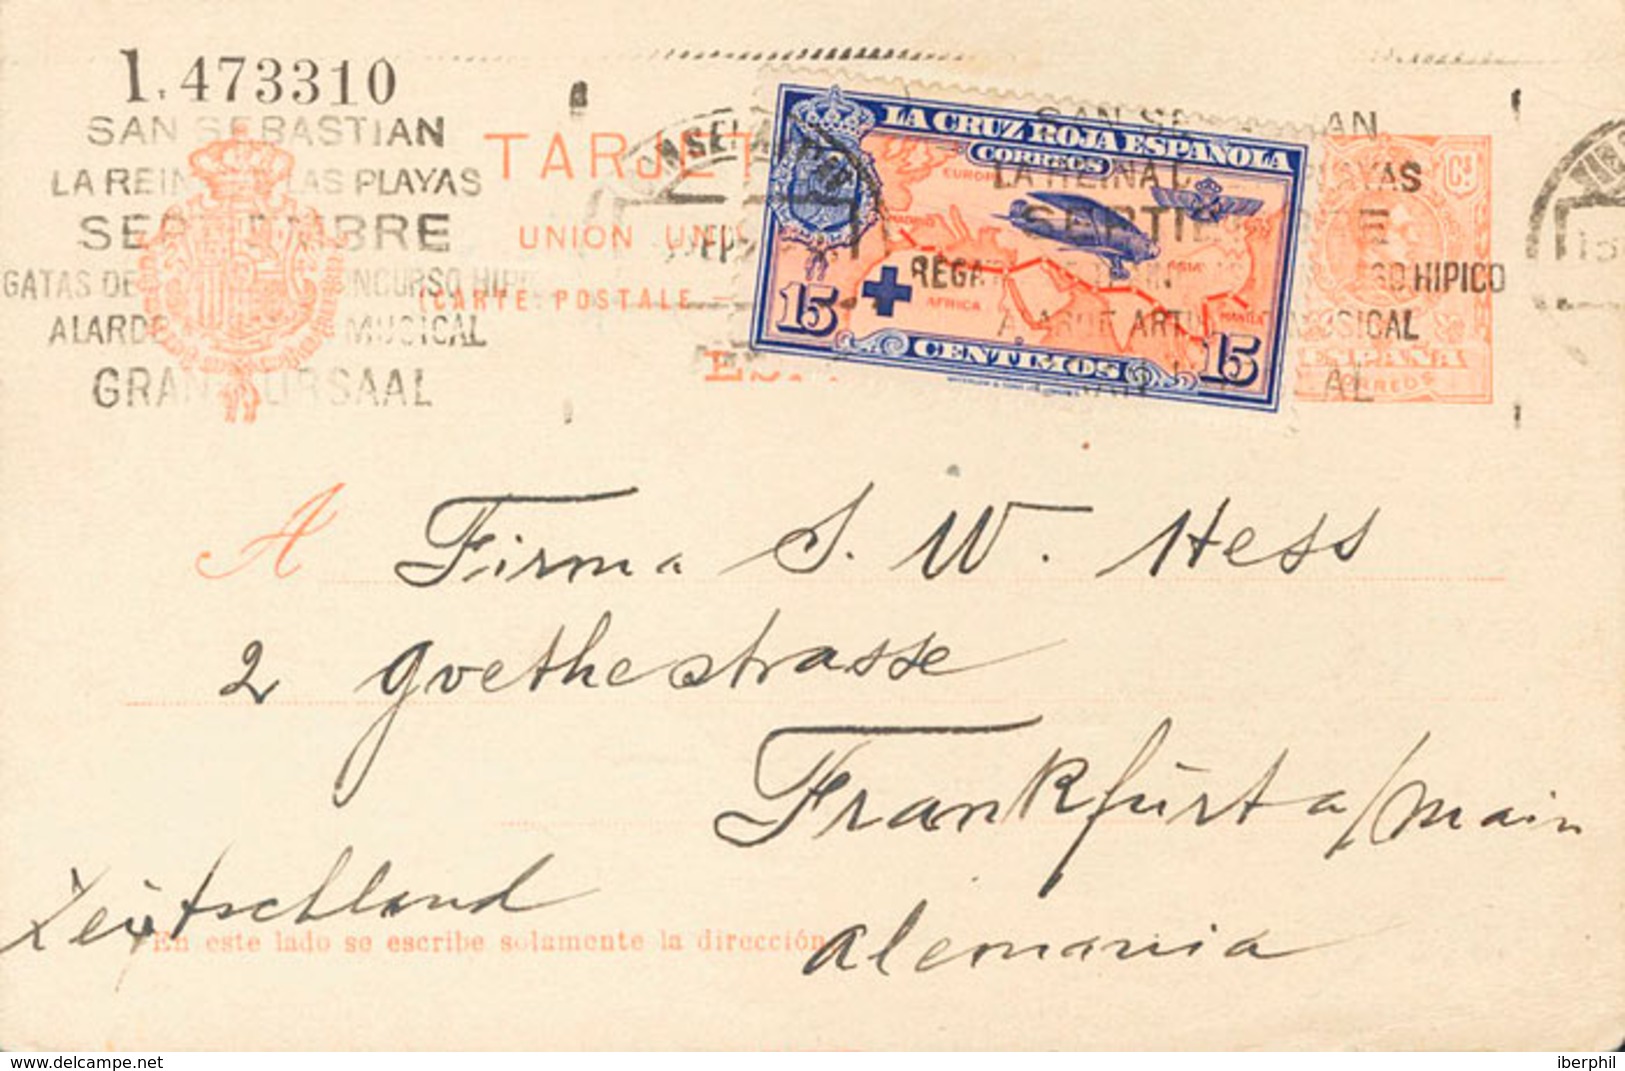 1.473310
SAN SEBASTIAN
LA REIN LAS PLAYAS
SEPTIEMBRE
GATAS DE CONCURSO HIPI
ALARDE MUSICAL
GRAN KURSAAL
TARJET
UNION UNI
CARTE POSTALE
ES
LA CRUZ ROJA ESPAÑOLA
CORREOS
EUROPA
MADRID
AFRICA
ASIA
MANILA
15 CENTIMOS 15
SAN SE AN
LA REINA D PLAYAS
SEPTIE RE
REGAT SO HIPICO
ALARDE ART MUSICAL
AL
Cs
ESPAÑA
CORREOS
A Firma S. W. Hess
2 Goethestrasse
Frankfurt a/Main
Deutschland
Alemania
En este lado se escribe solamente la dirección
iberphil